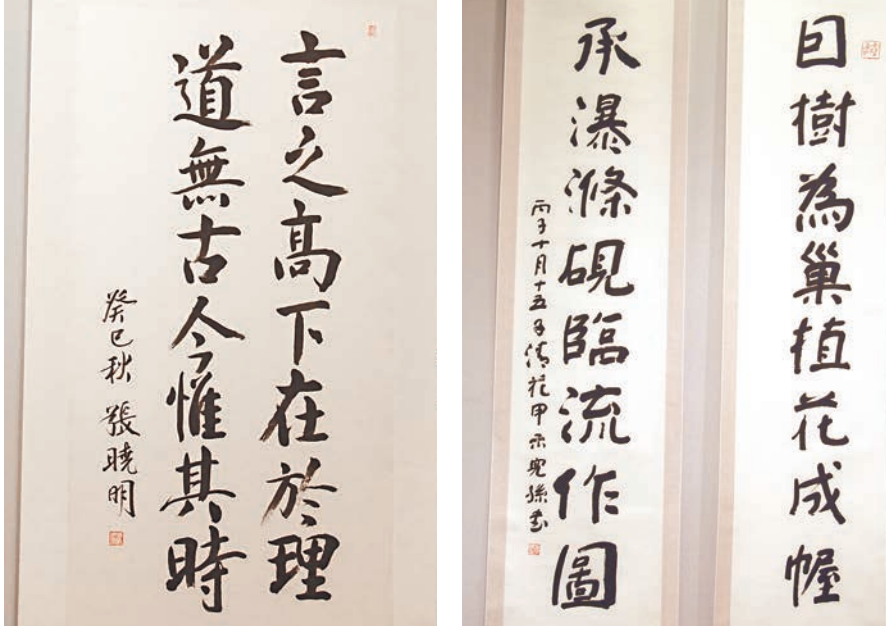 言之高下在於理
道無古今惟其時
癸巳秋 張曉明
囙樹為巢植花成幄
承瀑滌硯臨流作圖
丙子十月十五